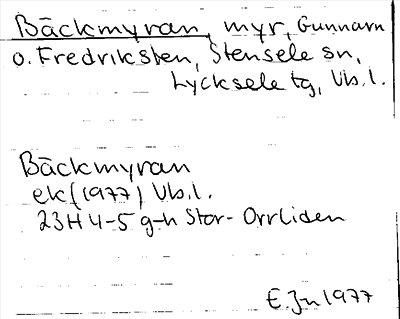 Bäckmyran, myr, Gunnarn
o. Fredriksten, Stensele sn,
Lycksele tg, Vb. l.
Bäckmyran
ek (1977) Vb. l.
23H 4-5 g-h Stor-Orrliden
E. Jn 1977